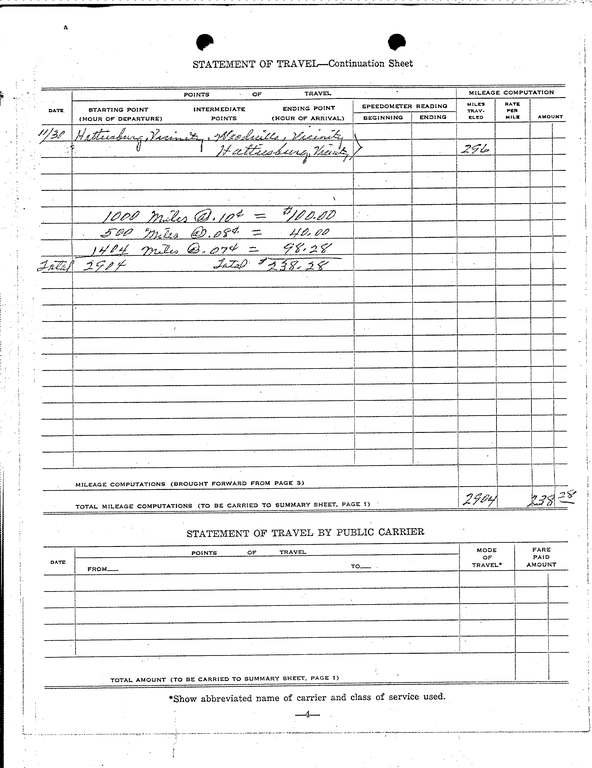 STATEMENT OF TRAVEL—Continuation Sheet
POINTS OF TRAVEL
MILEAGE COMPUTATION
DATE
STARTING POINT
(HOUR OF DEPARTURE)
INTERMEDIATE
POINTS
ENDING POINT
(HOUR OF ARRIVAL)
SPEEDOMETER READING
BEGINNING
ENDING
MILES
TRAV-
ELED
RATE
PER
MILE
AMOUNT
11/30 Hattiesburg, Vicinity, Woodville, Vicinity
Hattiesburg, Vicinity } 296
1000 Miles @ .10¢ = $100.00
500 Miles @ .08¢ = 40.00
1404 Miles @ .07¢ = 98.28
Total 2904 Total $238.28
MILEAGE COMPUTATIONS (BROUGHT FORWARD FROM PAGE 3)
TOTAL MILEAGE COMPUTATIONS (TO BE CARRIED TO SUMMARY SHEET, PAGE 1) 2904 238 28
STATEMENT OF TRAVEL BY PUBLIC CARRIER
DATE
POINTS OF TRAVEL
FROM
TO
MODE
OF
TRAVEL*
FARE
PAID
AMOUNT
TOTAL AMOUNT (TO BE CARRIED TO SUMMARY SHEET, PAGE 1)
*Show abbreviated name of carrier and class of service used.
—4—